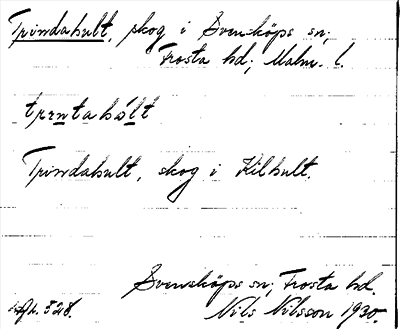 Trindahult, skog i Svensköps sn,
Frosta hd; Malm. l.
trentahålt
Trindahult, skog i Kilhult.
Svensköps sn; Frosta hd.
328. Nils Nilsson 1930